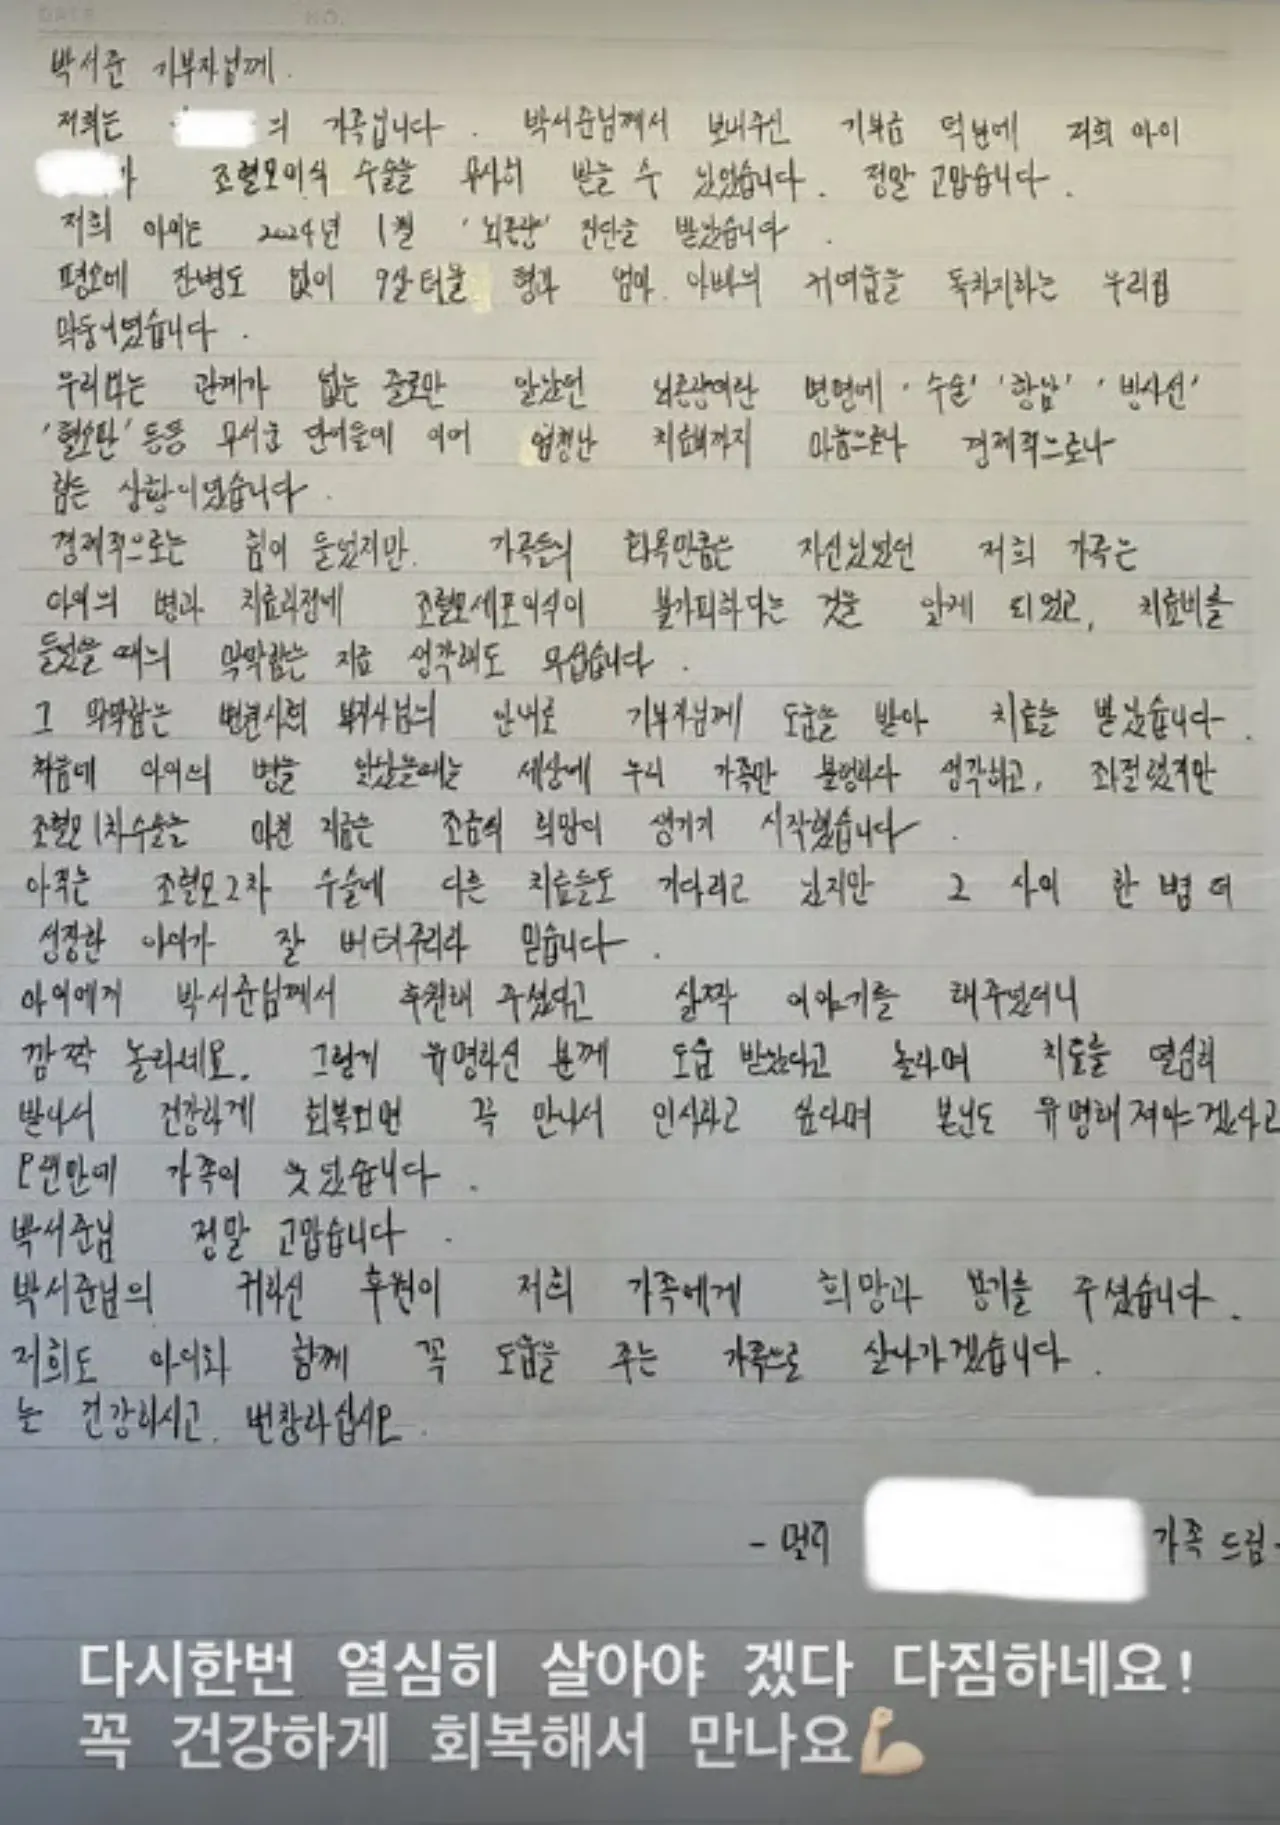 박서준 기부자님께.
저희는 의 가족입니다. 박서준님께서 보내주신 기부금 덕분에 저희 아이
가 조혈모이식 수술을 무사히 받을 수 있었습니다. 정말 고맙습니다.
저희 아이는 2024년 1월 '뇌종양' 진단을 받았습니다.
평소에 잔병도 없이 9살 터울 형과 엄마 아빠의 귀여움을 독차지하는 우리집
막둥이였습니다.
우리와는 관계가 없는 줄로만 알았던 뇌종양이란 병명에 '수술' '항암' '방사선'
'혈소판' 등등 무서운 단어들에 이어 엄청난 치료비까지 마음으로나 경제적으로나
힘든 상황이였습니다.
경제적으로는 힘이 들었지만. 가족들의 화목만큼은 자신있었던 저희 가족은
아이의 병과 치료과정에 조혈모세포이식이 불가피하다는 것을 알게 되었고, 치료비를
들었을 때의 막막함은 지금 생각해도 무섭습니다.
그 막막함은 병원사회 복지사님의 안내로 기부자님께 도움을 받아 치료를 받았습니다.
처음에 아이의 병을 알았을때는 세상에 우리 가족만 불행하다 생각하고, 좌절했지만
조혈모1차수술을 마친 지금은 조금의 희망이 생기기 시작했습니다.
아직은 조혈모2차 수술에 다른 치료들도 기다리고 있지만 그 사이 한 뼘 더
성장한 아이가 잘 버텨주리라 믿습니다.
아이에게 박서준님께서 후원해 주셨다고 살짝 이야기를 해주었더니
깜짝 놀라네요. 그렇게 유명하신 분께 도움 받았다고 놀라며 치료를 열심히
받아서 건강하게 회복되면 꼭 만나서 인사하고 싶다며 본인도 유명해져야겠다고
오랜만에 가족이 웃었습니다.
박서준님 정말 고맙습니다.
박서준님의 귀하신 후원이 저희 가족에게 희망과 용기를 주셨습니다.
저희도 아이와 함께 꼭 도움을 주는 가족으로 살아가겠습니다.
늘 건강하시고. 번창하십시오.
- 멀리 가족 드림 -
다시한번 열심히 살아야 겠다 다짐하네요!
꼭 건강하게 회복해서 만나요💪🏻